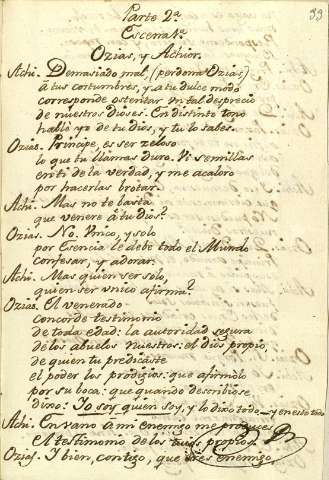 33
Parte 2ª
Escena 1ª
Ozias, y Achior.
Achi. Demasiado mal, (perdona Ozias)
à tus costumbres, y a tu dulce modo
corresponde ostentar un tal desprecio
de nuestros Dioses. En distinto tono
hablo yo de tu Dios, y tu lo sabes.
Ozias. Principe, es ser zeloso
lo que tu llamas duro. Vi semillas
en ti de la verdad, y me acaloro
por hacerlas brotar.
Achi. Mas no te basta
que venere à tu Dios?
Ozias. No. Unico, y solo
por Esencia le debe todo el Mundo
confesar, y adorar.
Achi. Mas quien ser solo,
quien ser unico afirma?
Ozias. El venerado
concorde testimonio
de toda edad: la autoridad segura
de los abuelos nuestros: el Dios propio
de quien tu predicaste
el poder los prodigios: que afirmólo
por su boca: que quando describiose
dixo: Yo soy quien soy, y lo dixo todo y en esto todo
Achi. En vano a mi enemigo me produces
el testimonio de los tuios propios.
Ozias. Y bien, contigo, que eres enemigo,